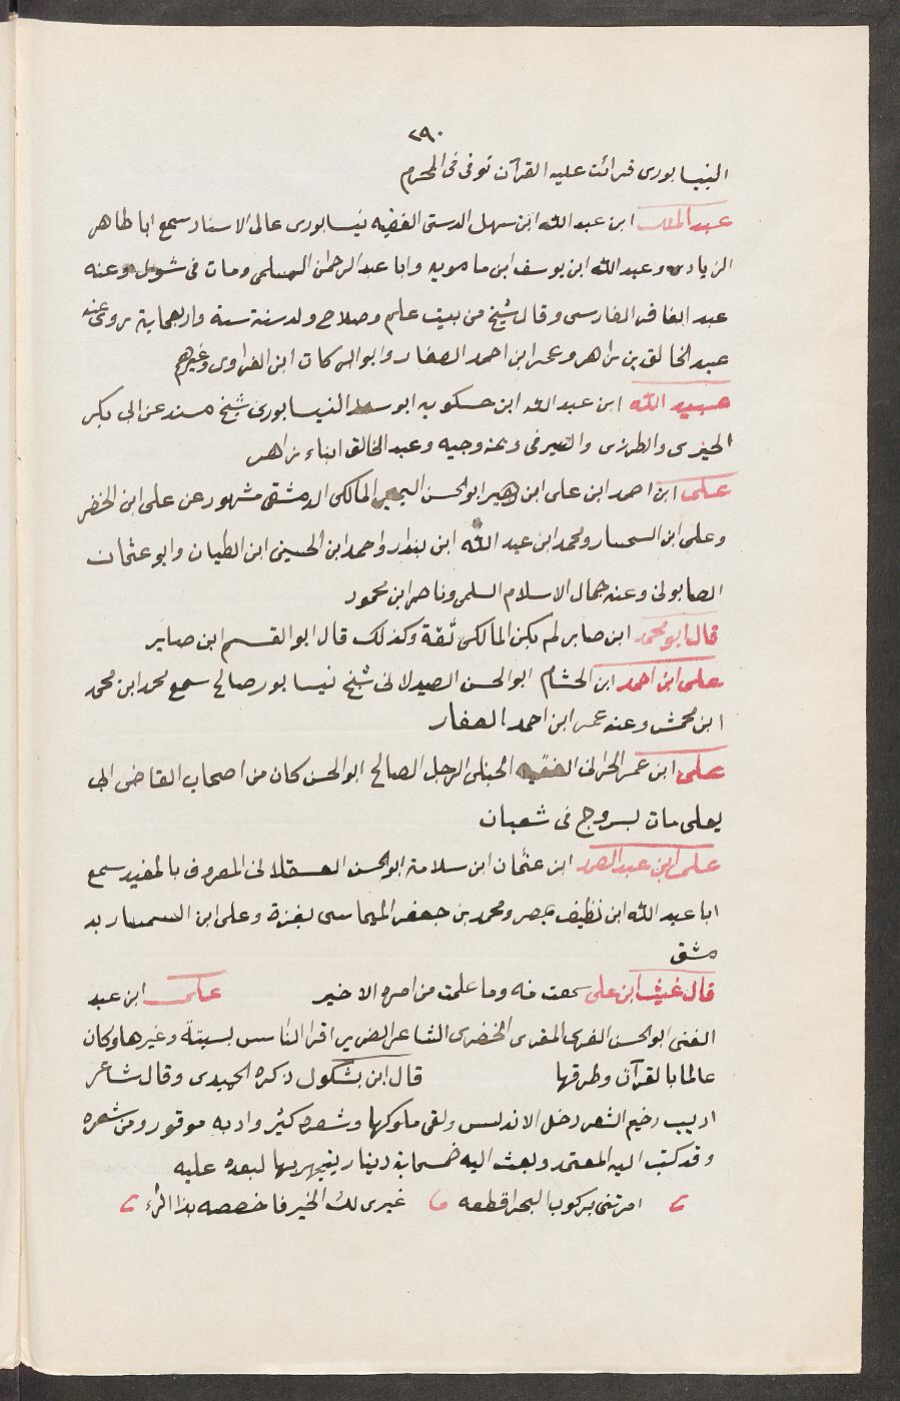 ٢٩٠
النيسابورى قرائت عليه القرآن توفى فى المحرم
عبد الملك ابن عبد الله ابن سهل الدستى الفقيه نيسابورى عالى الاسناد سمع ابا طاهر
الزيادى وعبد الله ابن يوسف ابن مامويه وابا عبد الرحمن السلمى ومات فى شوال وعنه
عبد الغافر الفارسى وقال شيخ من بيت علم وصلاح ولد سنة ستة واربعماية روى عنه
عبد الخالق بن زاهر وعمر ابن احمد الصفار وابو البركات ابن الفراوى وغيرهم
عبيد الله ابن عبد الله ابن حسكويه ابو سعد النيسابورى شيخ مسند عن ابى بكر
الحيرى والطرزى والصيرفى وعنه وجيه وعبد الخالق ابناء زاهر
على ابن احمد ابن على ابن زهير ابو الحسن التميمى المالكى الدمشقى مشهور عن على ابن الخضر
وعلى ابن السمسار ومحمد ابن عبد الله ابن بندار واحمد ابن الحسين ابن الطيان وابو عثمان
الصابونى وعنه جمال الاسلام السلمى وناصر ابن محمود
قال ابو محمد ابن صابر لم يكن المالكى ثقة وكذلك قال ابو القسم ابن صابر
على ابن احمد ابن الخشام ابو الحسن الصيدلانى شيخ نيسابور صالح سمع محمد ابن محمد
ابن محمش وعنه عمر ابن احمد الصفار
على ابن عمر الحرانى الفقيه الحنبلى الرجل الصالح ابو الحسن كان من اصحاب القاضى ابى
يعلى مات بسروج فى شعبان
على ابن عبد الصمد ابن عثمان ابن سلامة ابو الحسن العسقلانى المعروف بالمفيد سمع
ابا عبد الله ابن نظيف بمصر ومحمد بن جعفر الميماسى بغزة وعلى ابن السمسار بد
مشق
قال غيث ابن على سمعت منه وما علمت من امره الا خير على ابن عبد
الغنى ابو الحسن الفهرى المقرى الحضرى الشاعر الضرير اقرا الناس بسبتة وغيرها وكان
عالما بالقرآن وطرقها قال ابن بشكول ذكره الحميدى وقال شاعر
اديب رخيم الشعر دخل الاندلس ولقى ملوكها وشعره كثير وادبه موفور ومن شعره
وقد كتب اليه المعتمد وبعث اليه خمسماية دينار يتجهز بها لبعده عليه
امرتنى بركوب البحر اقطعه غيرى لك الخير فاخصصه بذا الراء